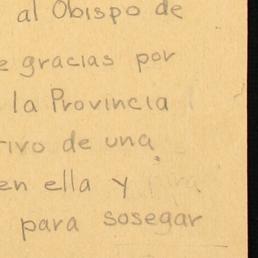 al Obispo de
e gracias por
la Provincia
tivo de una
en ella y
para sosegar